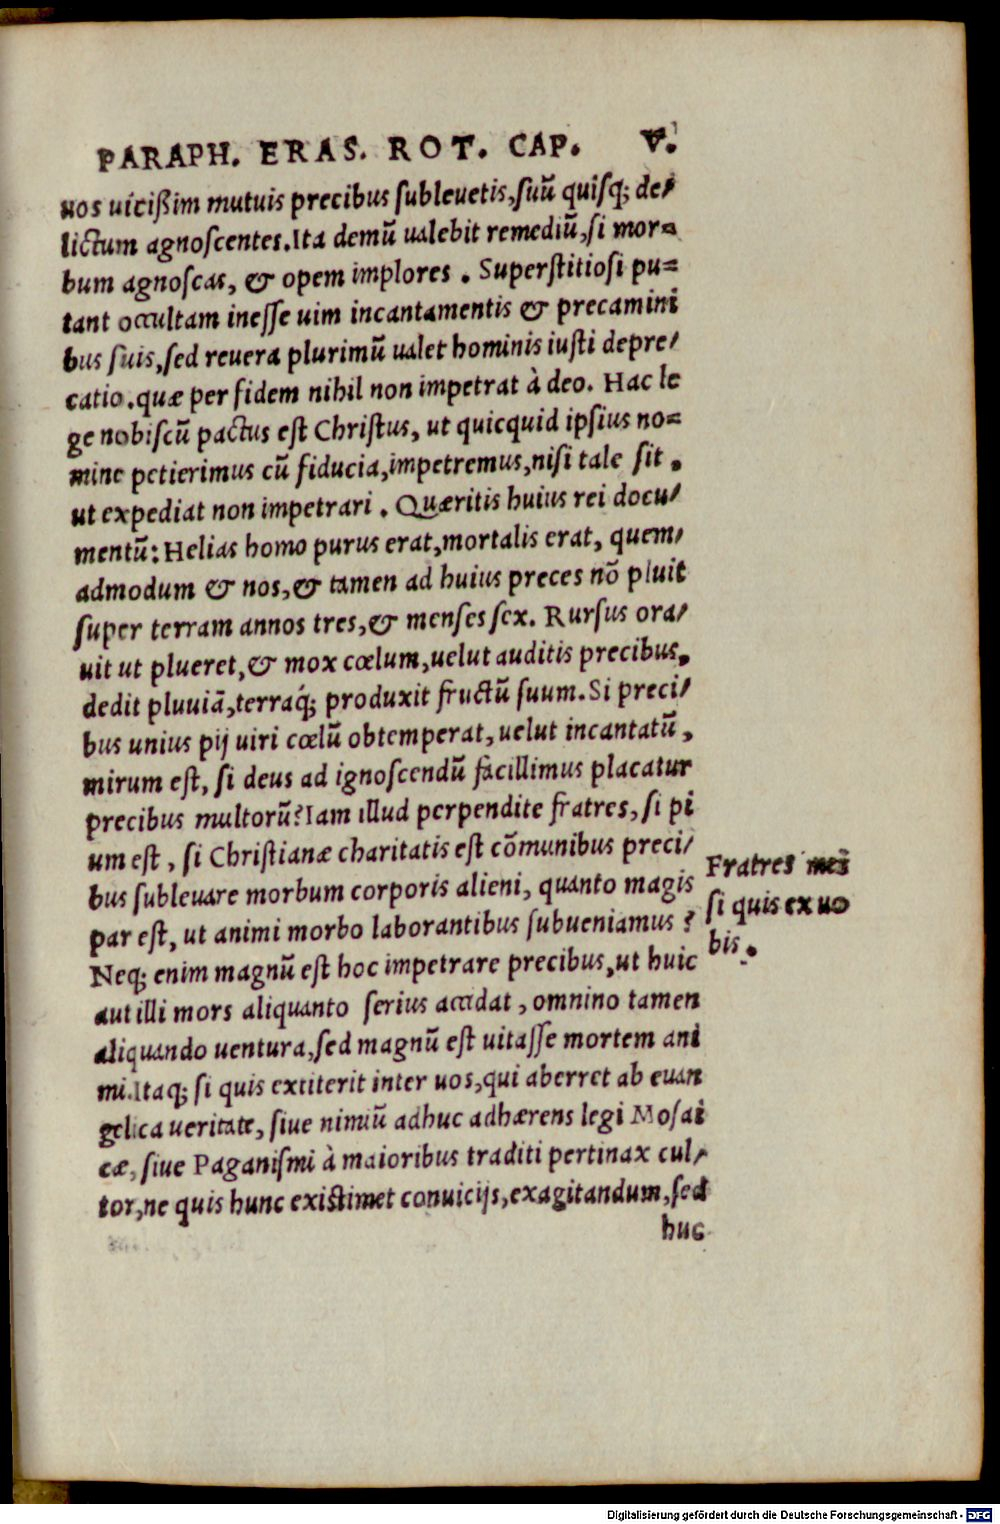 PARAPH. ERAS. ROT. CAP. V.
uos uicißim mutuis precibus ſubleuetis,ſuũ quiſq; de/
lictum agnoſcentes.Ita demũ ualebit remediũ,ſi mor=
bum agnoſcas, & opem implores . Superſtitioſi pu=
tant occultam ineſſe uim incantamentis & precamini
bus ſuis,ſed reuera plurimũ ualet hominis iuſti depre/
catio.quæ per fidem nihil non impetrat à deo. Hac le
ge nobiſcũ pactus eſt Chriſtus, ut quicquid ipſius no=
mine petierimus cũ fiducia,impetremus,niſi tale ſit .
ut expediat non impetrari . Quæritis huius rei docu/
mentũ: Helias homo purus erat,mortalis erat, quem/
admodum & nos,& tamen ad huius preces nõ pluit
ſuper terram annos tres,& menſes ſex. Rurſus ora/
uit ut plueret,& mox cœlum,uelut auditis precibus,
dedit pluuiã,terraq́; produxit fructũ ſuum.Si preci/
bus unius pij uiri cœlũ obtemperat,uelut incantatũ ,
mirum eſt, ſi deus ad ignoſcendũ facillimus placatur
precibus multorũ?Iam illud perpendite fratres, ſi pi
um eſt , ſi Chriſtianæ charitatis eſt cõmunibus preci/
bus ſubleuare morbum corporis alieni, quanto magis
par eſt, ut animi morbo laborantibus ſubueniamus ?
Neq; enim magnũ eſt hoc impetrare precibus,ut huic
aut illi mors aliquanto ſerius accidat , omnino tamen
aliquando uentura,ſed magnũ eſt uitaſſe mortem ani
mi.Itaq; ſi quis extiterit inter uos,qui aberret ab euan
gelica ueritate, ſiue nimiũ adhuc adhærens legi Moſai
cæ, ſiue Paganiſmi à maioribus traditi pertinax cul/
tor,ne quis hunc exiſtimet conuicijs,exagitandum,ſed
huc
Fratres mei
ſi quis ex uo
bis.
Digitalisierung gefördert durch die Deutsche Forschungsgemeinschaft - DFG